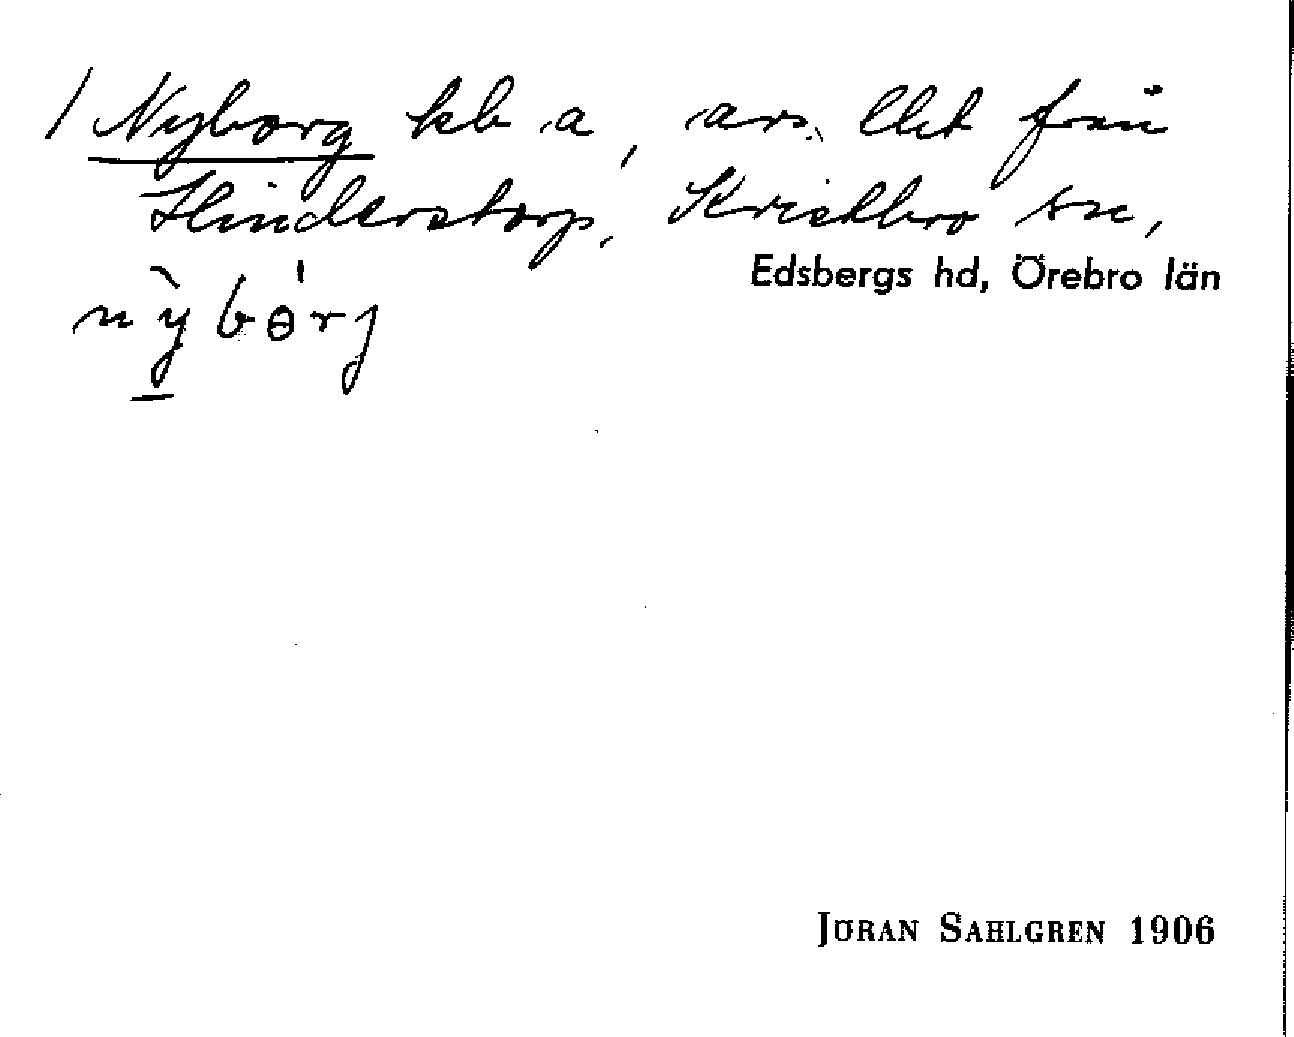 / Nyborg kb a, avs. llet från
Hinderstorp, Kvistbro sn,
Edsbergs hd, Örebro län
nỳbɵ́rj
JÖRAN SAHLGREN 1906